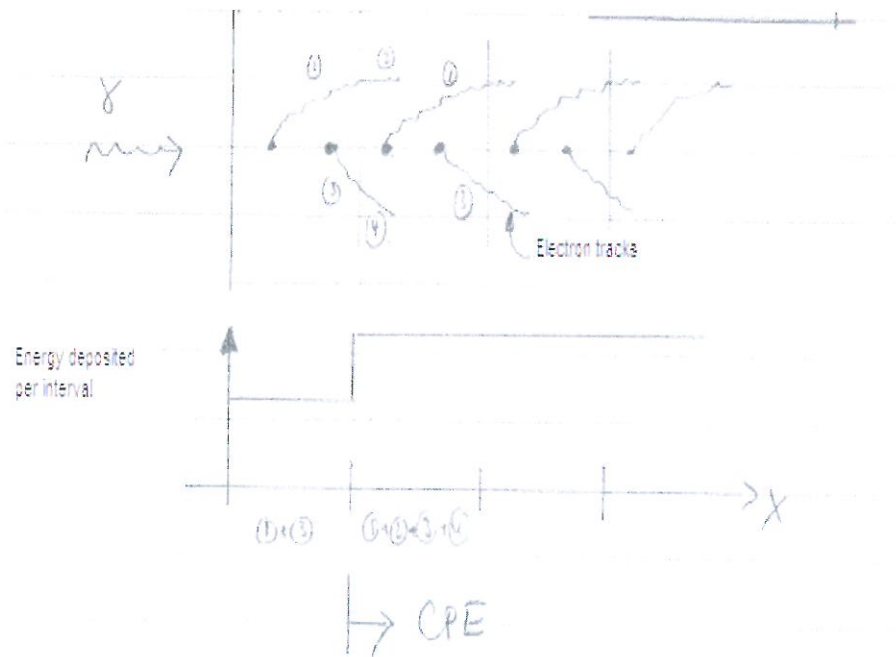 ① ② ①
γ
③ ④ ③
Electron tracks
Energy deposited
per interval
X
①+③ ①+②+③+④
CPE